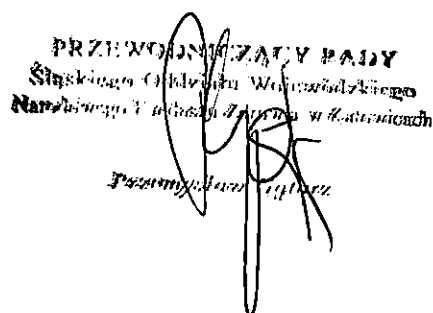 PRZEWODNICZĄCY RADY
Śląskiego Oddziału Wojewódzkiego
Narodowego Funduszu Zdrowia w Katowicach
Przemysław